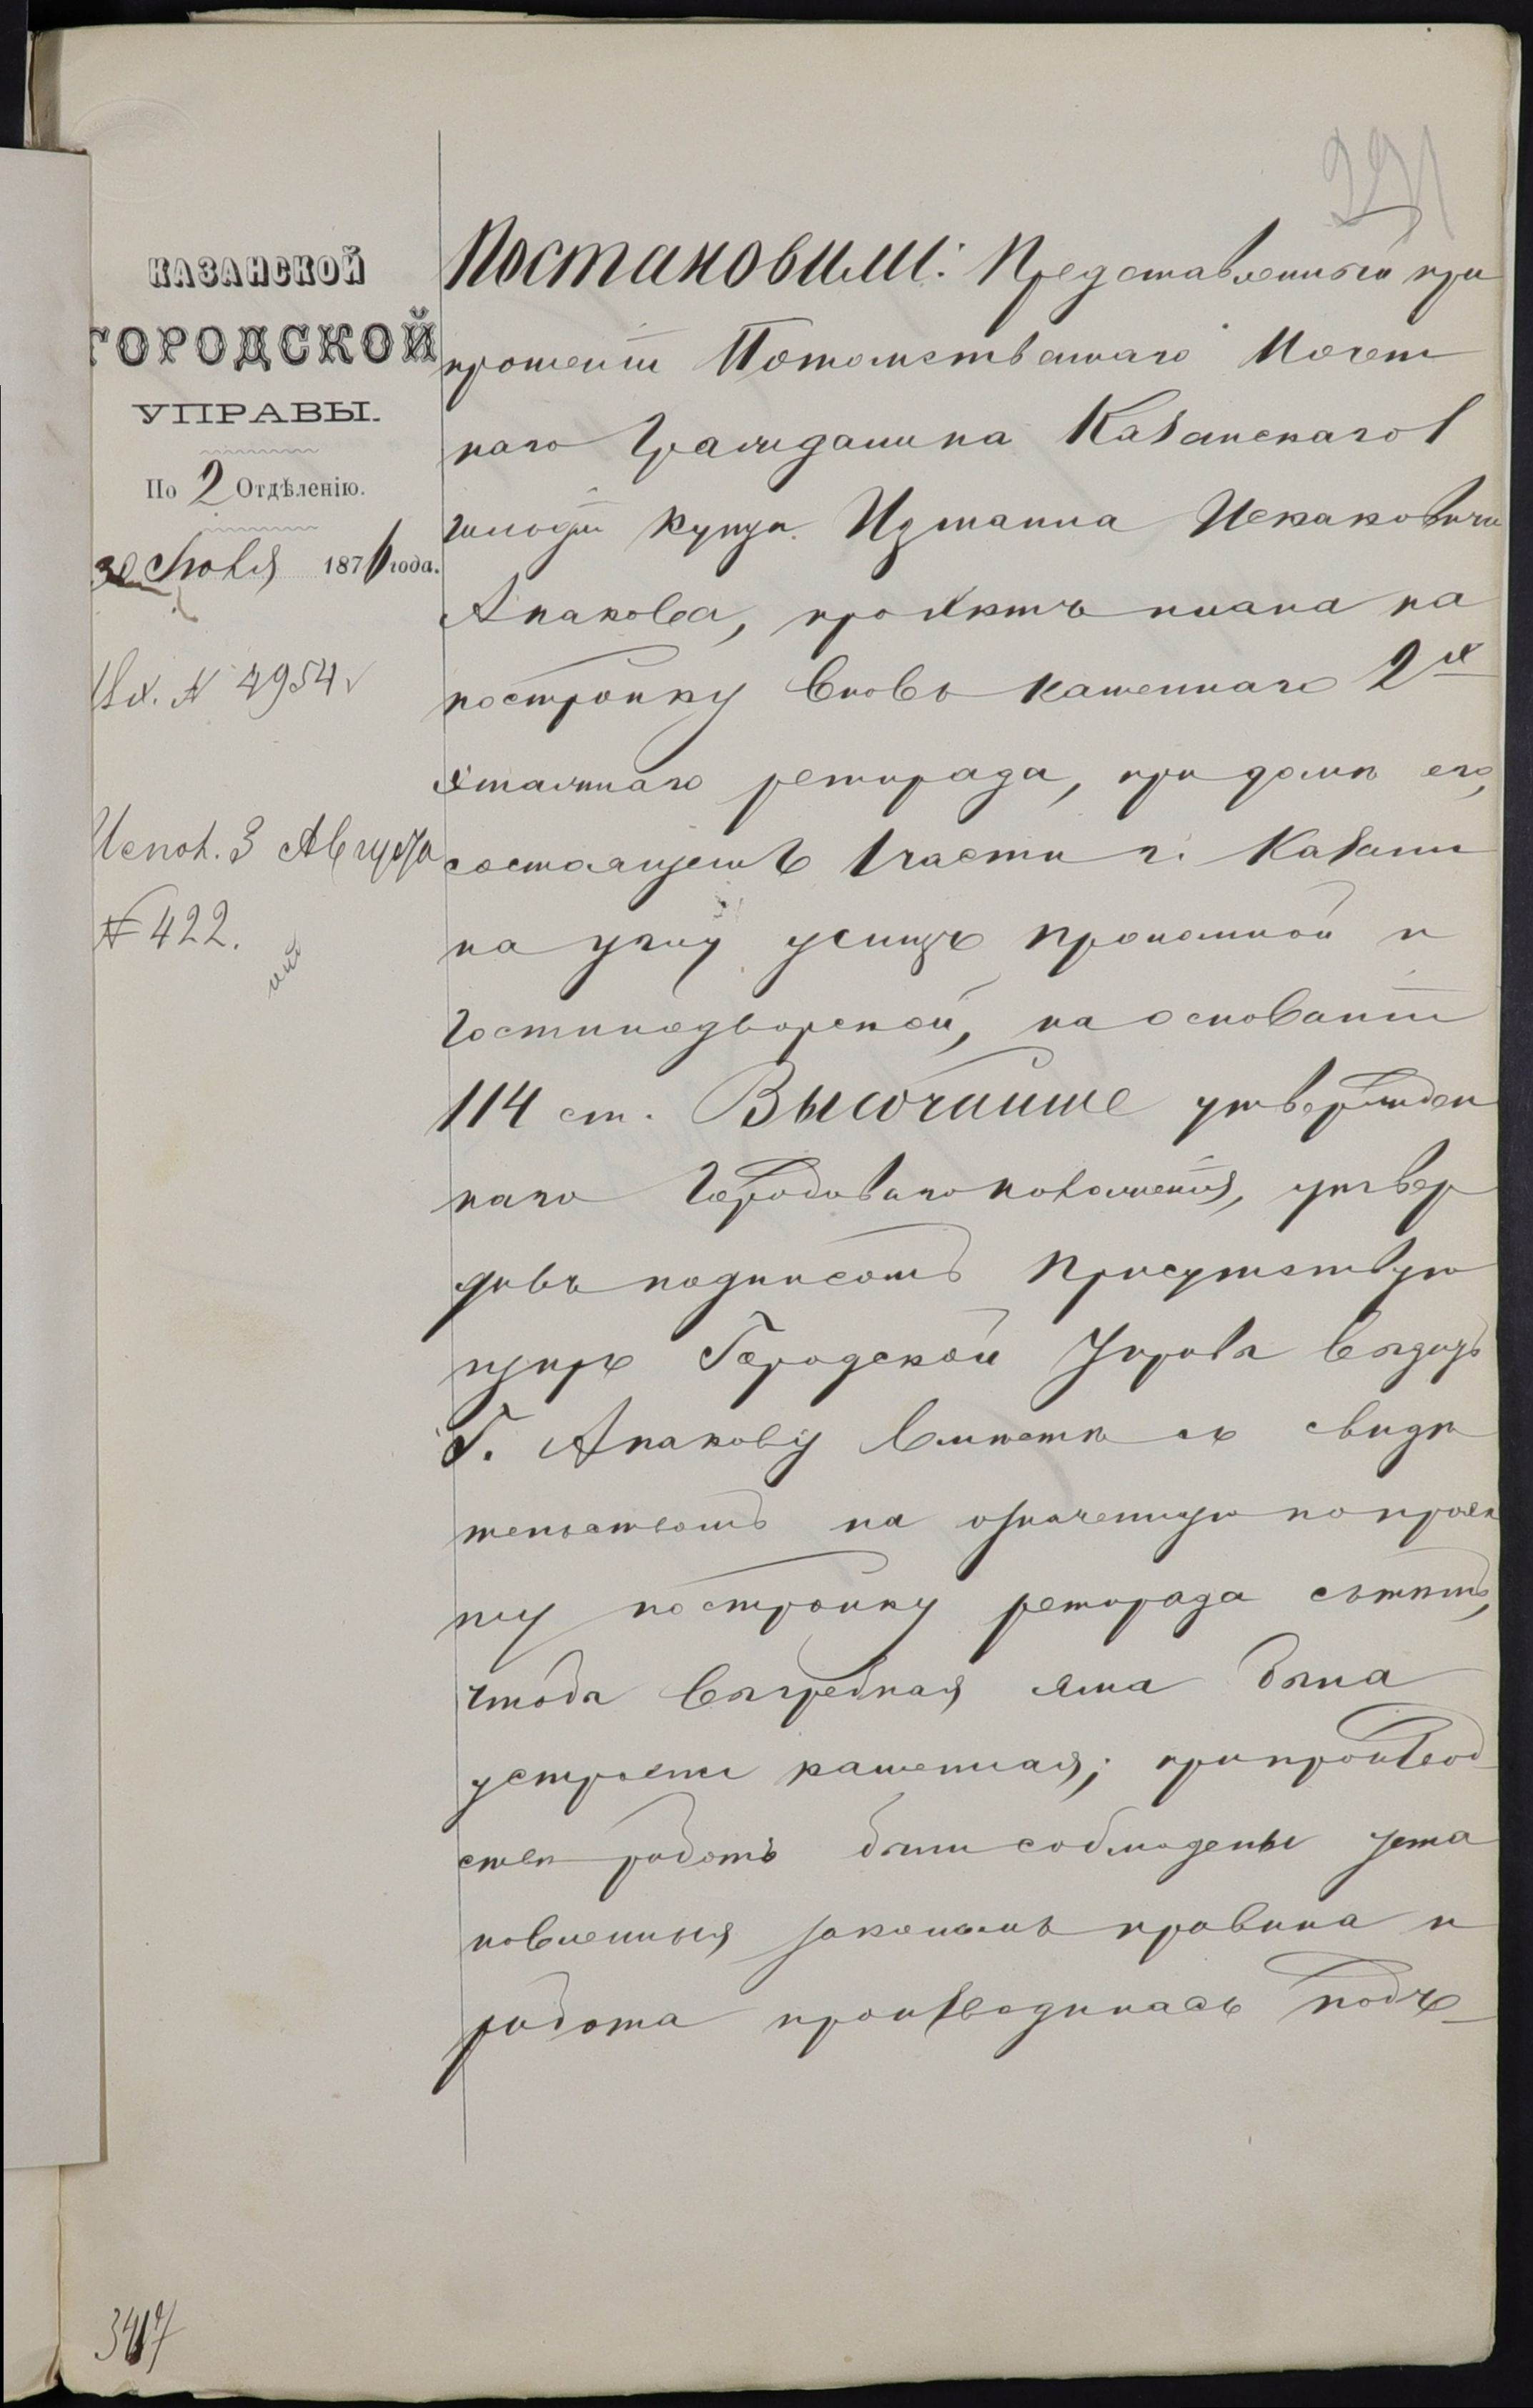 КАЗАНСКОЙ
ГОРОДСКОЙ
УПРАВЫ.
По 2 Отдѣленію.
30 Іюля 1871 года.
Вх. № 4954
Испол. 3 Августа
№ 422.
Постановили: Представленный при
прошеніи Потомственнаго Почет
наго Гражданина Казанскаго 1
гильдіи купца Измаила Исхаковича
Апакова, проэктъ плана на
постройку вновь каменнаго 2х
этажнаго ретирада, при домѣ его,
состоящемъ 1 части г. Казани
на углу улицъ Проломной и
Гостинодворской, на основаніи
114 ст. Высочайше утвержден
наго Городоваго положенія, утвер
дивъ подписомъ Присутствую
щихъ Городской Управы выдать
Г. Апакову вмѣстѣ съ свидѣ
тельствомъ на означенную по проэк
ту постройку ретирада съ тѣмъ,
чтобы выгребная яма была
устроена каменная; при производ
ствѣ работъ были соблюдены уста
новленныя закономъ правила и
работа производилась подъ
3417